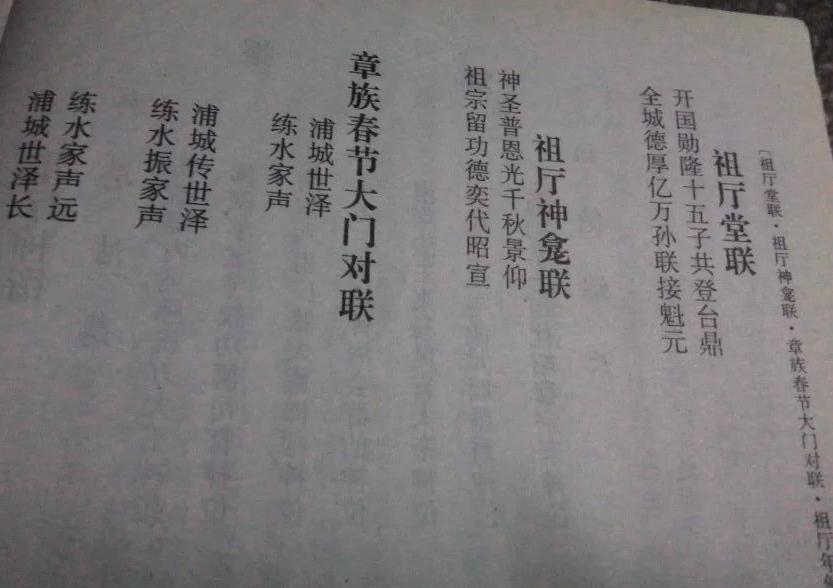 〔祖厅堂联·祖厅神龛联·章族春节大门对联·祖厅年
祖厅堂联
开国勋隆十五子共登台鼎
全城德厚亿万孙联接魁元
祖厅神龛联
神圣普恩光千秋景仰
祖宗留功德奕代昭宣
章族春节大门对联
浦城世泽
练水家声
浦城传世泽
练水振家声
练水家声远
浦城世泽长